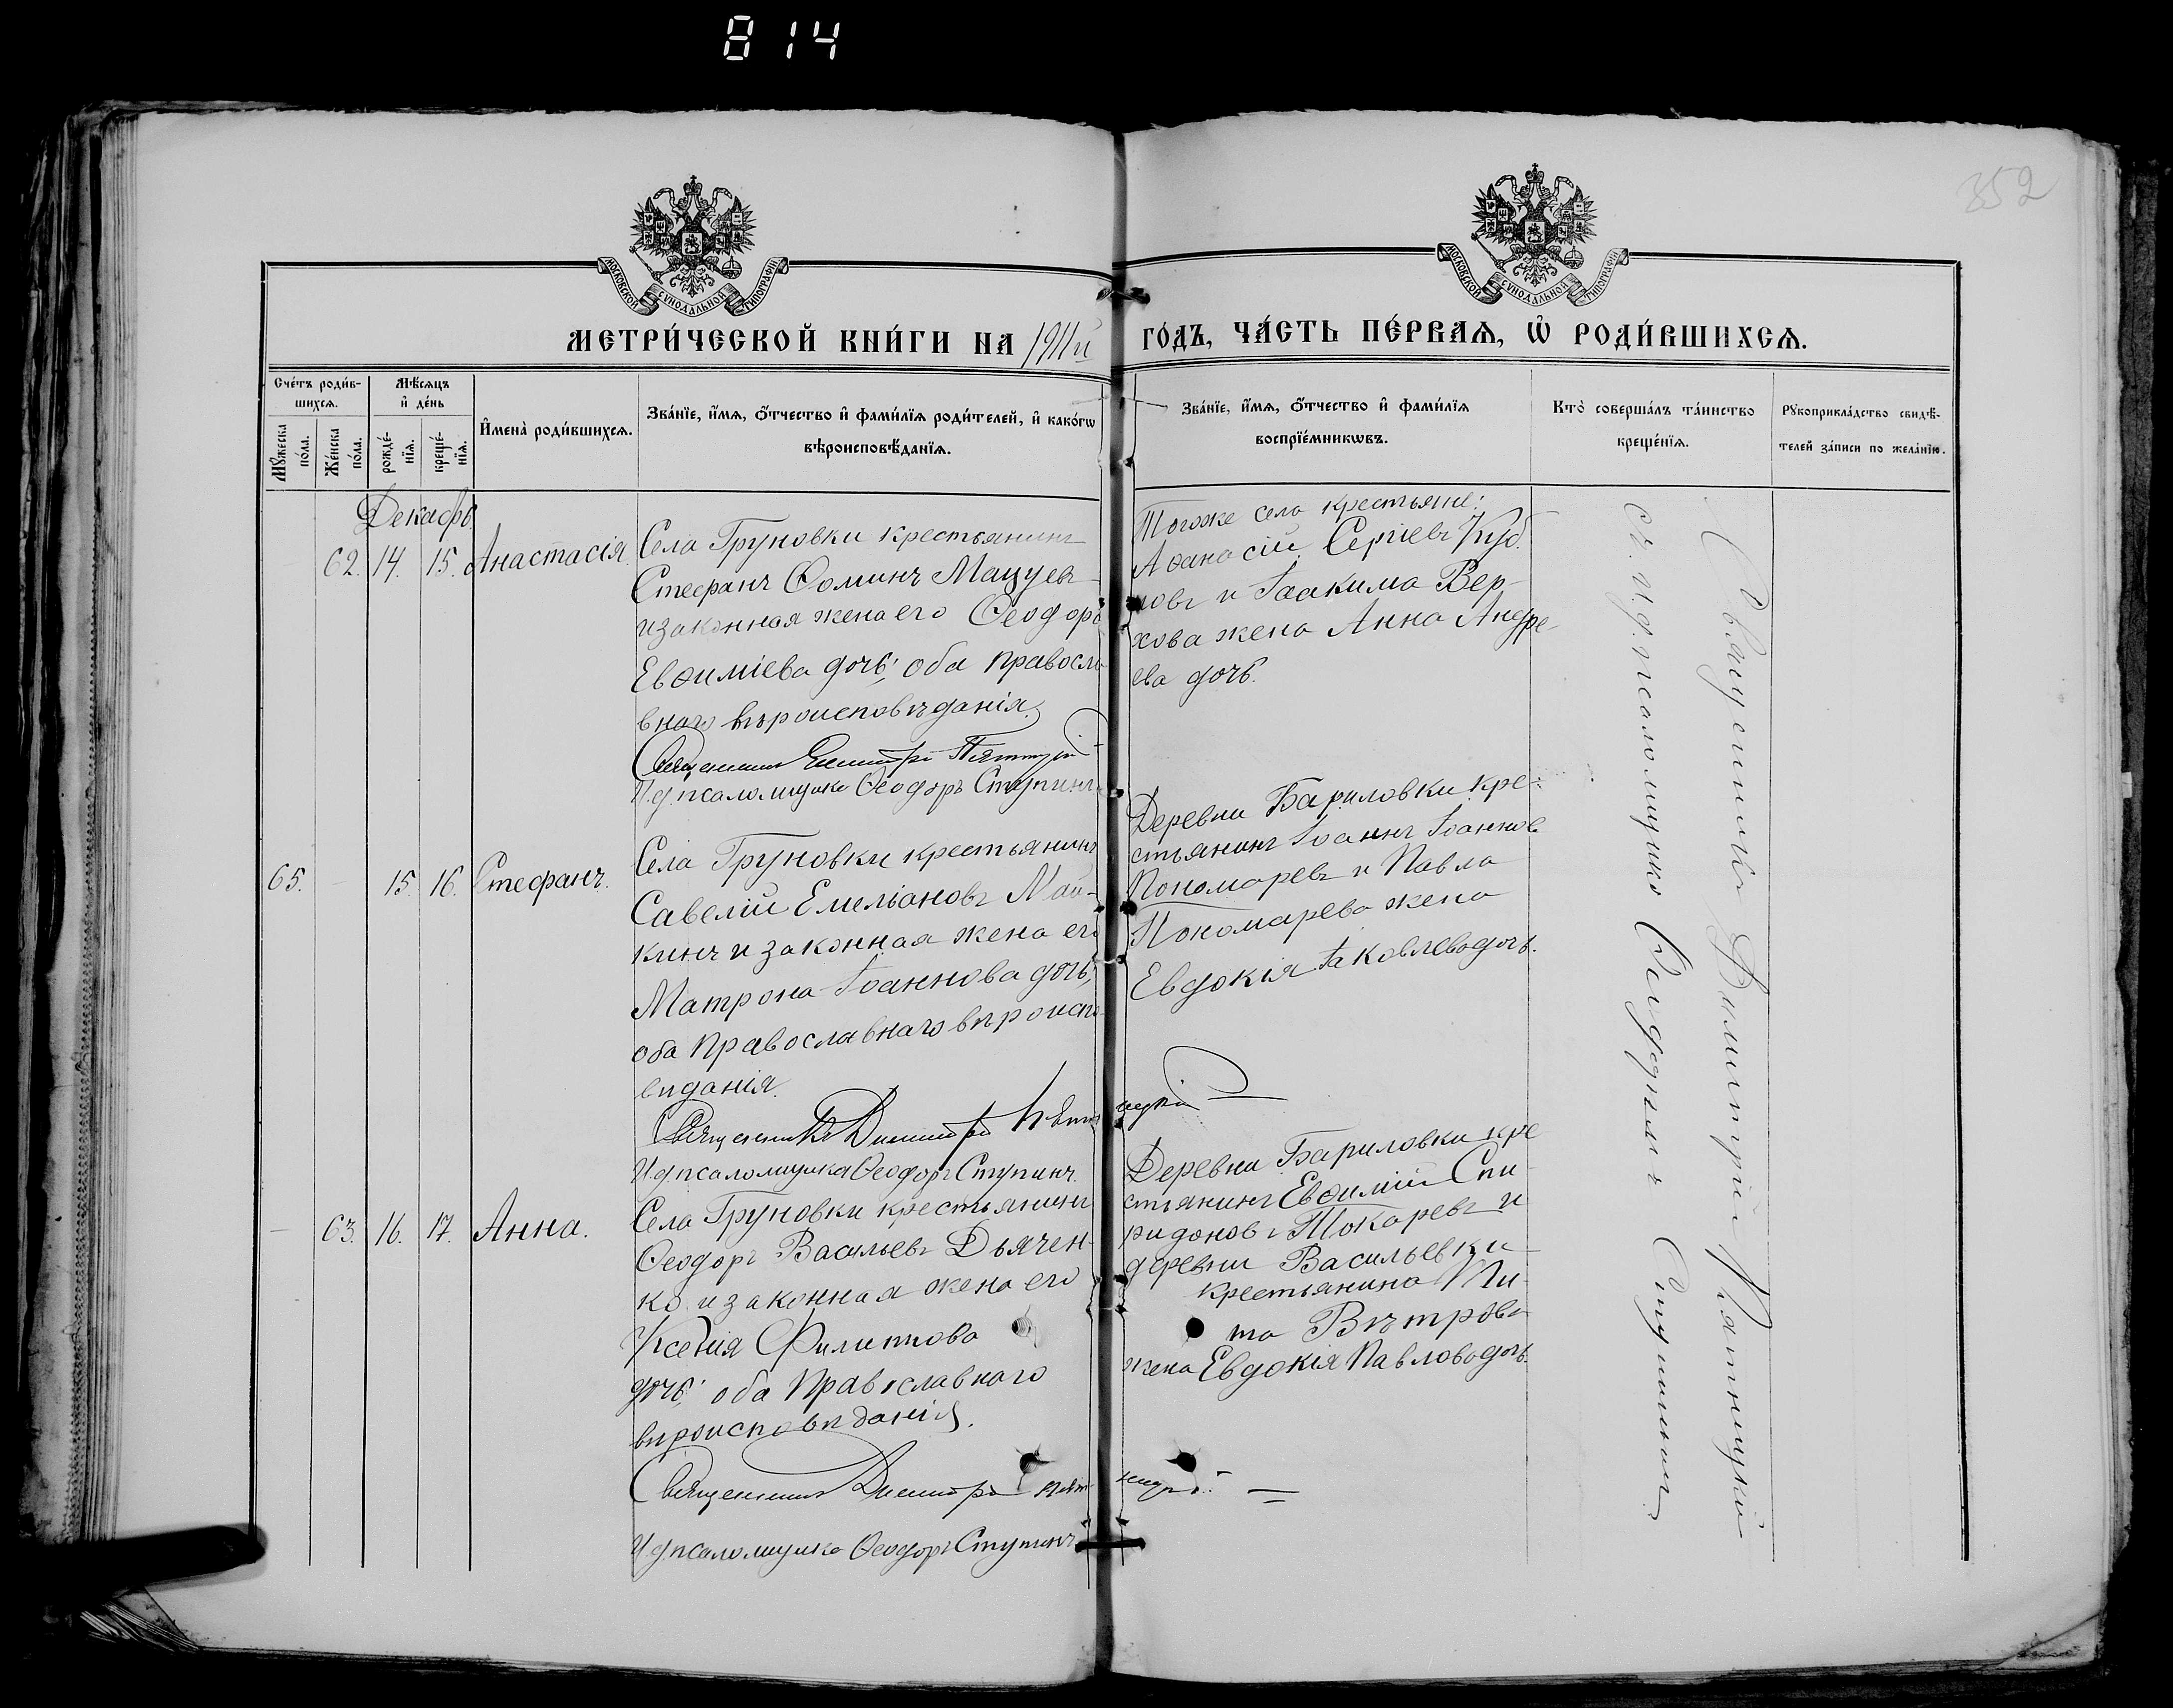 814
352
МОСКОВСКОЙ СѴНОДАЛЬНОЙ ТИПОГРАФІИ
МОСКОВСКОЙ СѴНОДАЛЬНОЙ ТИПОГРАФІИ
МЕТРИ́ЧЕСКОЙ КНИ́ГИ НА 1911й ГО́ДЪ, ЧА́СТЬ ПЕ́РВАѦ, Ѽ РОДИ́ВШИХСѦ.
Сче́тъ роди́в-
шихсѧ.
Мꙋ́жеска по́ла.
Же́нска по́ла.
Мѣ́сѧцъ
и҆ де́нь
рожде́-
нїѧ.
креще́-
нїѧ.
И҆мена̀ роди́вшихсѧ.
Зва́нїе, и҆́мѧ, ѻ҆́тчество и҆ фами́лїѧ роди́телей, и҆ како́гѡ
вѣроисповѣ́данїѧ.
Зва́нїе, и҆́мѧ, ѻ҆́тчество и҆ фами́лїѧ
воспрїе́мникѡвъ.
Кто̀ соверша́лъ та́инство
креще́нїѧ.
Рꙋкоприкла́дство свидѣ́-
телей за́писи по жела́нїю.
Декабрь
62. 14. 15. Анастасія.
Села Груновки крестьянинъ
Стефанъ Ѳоминъ Мацуев
и законная жена его Ѳеодора
Евѳиміева дочь; оба правосла-
внаго вѣроисповѣданія.
Священникъ Димитрій Пятницкій
И.д. псаломщика Ѳеодоръ Ступинъ
Тогоже села крестьяне:
Аѳанасій Сергіевъ Куб-
ковъ и Іоакима Вер-
хова жена Анна Андре-
ева дочь.
65. – 15. 16. Стефанъ.
Села Груновки крестьянинъ
Савелій Емельяновъ Май-
кинъ и законная жена его
Матрона Іоаннова дочь;
оба Православнаго вѣроиспо-
вѣданія.
Священникъ Димитрій Пятницкій
И.д. псаломщика Ѳеодоръ Ступинъ.
Деревни Бариловки кре-
стьянинъ Іоаннъ Іоаннов
Пономаревъ и Павла
Пономарева жена
Евдокія Іаковлева дочь.
– 63. 16. 17. Анна.
Села Груновки крестьянинъ
Ѳеодоръ Васильевъ Дьячен-
ко и законная жена его
Ксенія Филиппова
дочь; оба Православнаго
вѣроисповѣданія.
Священникъ Димитрій Пятницкій
И.д. псаломщика Ѳеодоръ Ступинъ
Деревни Бариловки кре-
стьянинъ Евѳимій Спи-
ридоновъ Токаревъ и
деревни Васильевки
крестьянина Ти-
та Вѣтрова
жена Евдокія Павлова дочь.
Священникъ Димитрій Пятницкій
съ и.д. псаломщика Ѳеодоромъ Ступинымъ